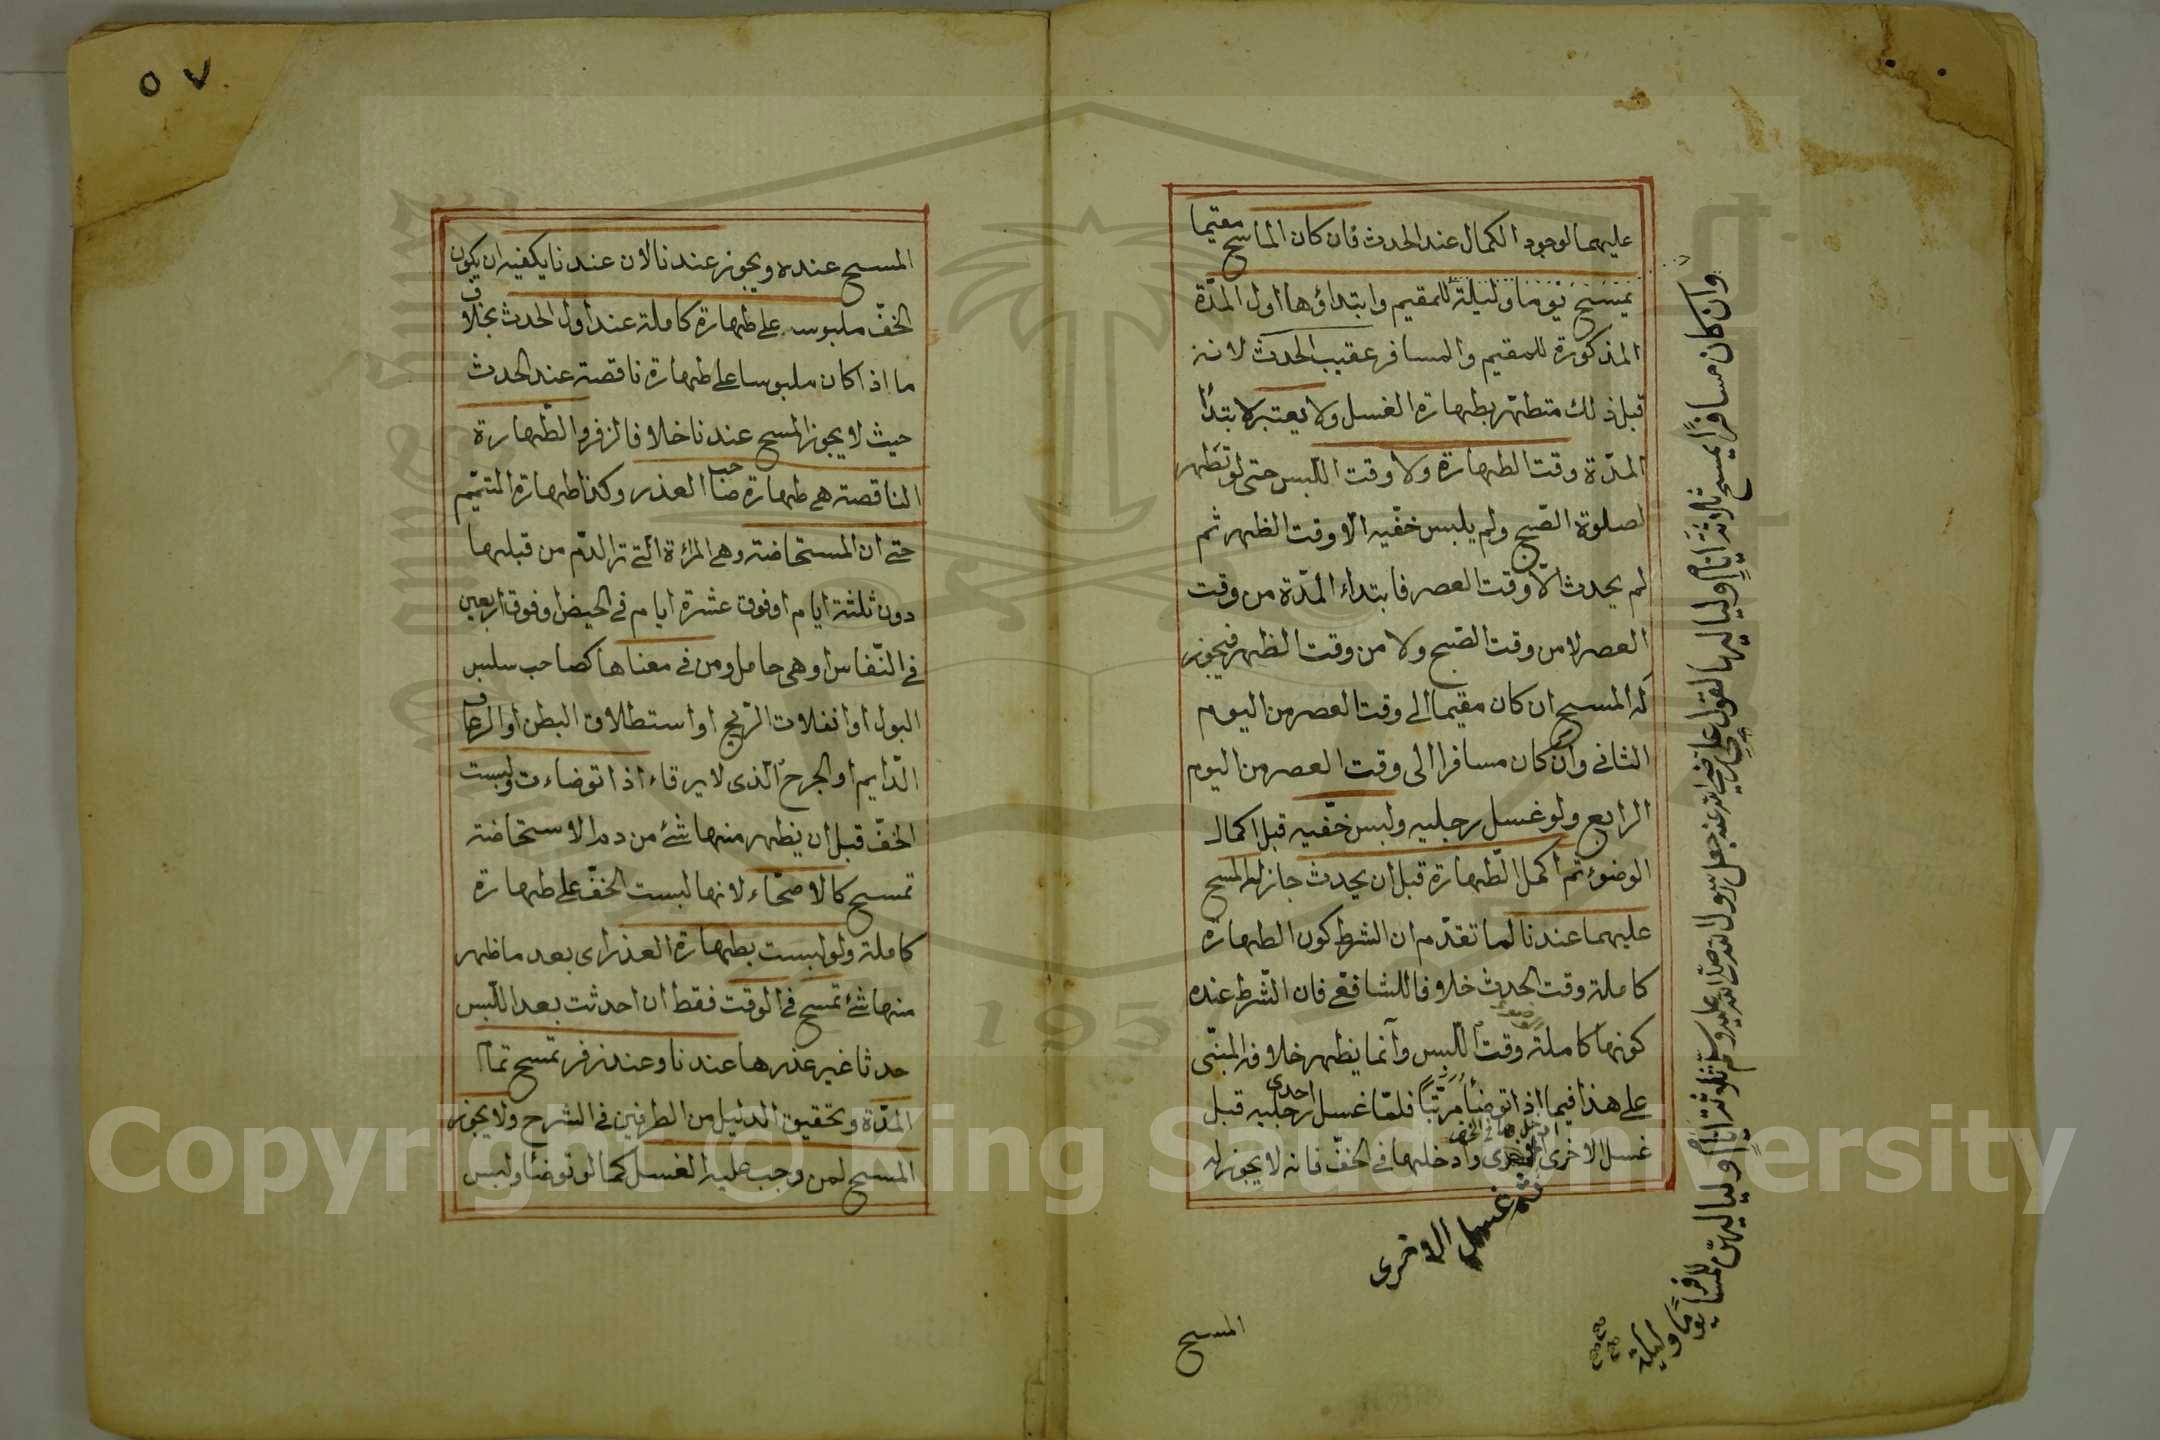 عليهما لوجود الكمال عند الحدث فان كان الماسح مقيما
يمسح يوما وليلة للمقيم وابتداؤها اول المدّة
المذكورة للمقيم والمسافر عقيب الحدث لانه
قبل ذلك متطهر بطهارة الغسل ولا يعتبر لا بتدأ
المدّة وقت الطهارة ولا وقت اللّبس حتى لو تطهر
لصلوة الصّبح ولم يلبس خفّيه الّا وقت الظهر ثم
لم يحدث الّا وقت العصر فابتداء المدّة من وقت
العصر لا من وقت الصّبح ولا من وقت الظهر فيجوز
له المسح ان كان مقيما الى وقت العصر من اليوم
الثانى وان كان مسافرا الى وقت العصر من اليوم
الرابع ولو غسل رجليه ولبس خفّيه قبل اكمال
الوضوء ثم اكمل الطّهارة قبل ان يحدث جاز له المسح
عليهما عندنا لما تقدّم ان الشرط كون الطهارة
كاملة وقت الحدث خلافا للشافعى فان الشّرط عنده
كونها كاملة وقت اللّبس وانّما يظهر خلافه المبنى
على هذا فيما اذا توضأ مرتّبا فلمّا غسل احدى رجليه قبل
غسل الاخرى وادخلها فى الخفّ فانه لا يجوز له
ثم غسل الاخرى
المسح
وان كان مسافرًا يمسح ثلاثة ايّام ولياليها لقول على رضى الله عنه جعل رسول الله صلى الله عليه وسلم ثلاثة ايّام ولياليهنّ للمسافر ويومًا وليلة
٥٧
المسح عنده ويجوز عندنا لان عندنا يكفيه ان يكون
الخفّ ملبوسا على طهارة كاملة عند اول الحدث بخلاف
ما اذا كان ملبوسا على طهارة ناقصة عند الحدث
حيث لا يجوز المسح عندنا خلافا لزفر والطّهارة
الناقصة هى طهارة صاحب العذر وكذا طهارة المتيمّم
حتى ان المستحاضة وهى المرءة الّتى ترا الدّم من قبلها
دون ثلثة ايام او فوق عشرة ايام فى الحيض او فوق اربعين
فى النّفاس او هى حامل ومن فى معناها كصاحب سلس
البول او انفلات الرّيح او استطلاق البطن او الرعاف
الدّايم او الجرح الّذى لا يرقاء اذا توضاءت ولبست
الخفّ قبل ان يظهر منها شئ من دم الاستحاضة
تمسح كالاصحّاء لانها لبست الخفّ على طهارة
كاملة ولو لبست بطهارة العذر اى بعد ما ظهر
منها شئ تمسح فى الوقت فقط ان احدثت بعد اللّبس
حدثا غير عذرها عندنا وعند زفر تمسح تمام
المدّة وتحقيق الدليل من الطرفين فى الشرح ولا يجوز
المسح لمن وجب عليه الغسل كما لو توضأ ولبس
Copyright © King Saud University
1957